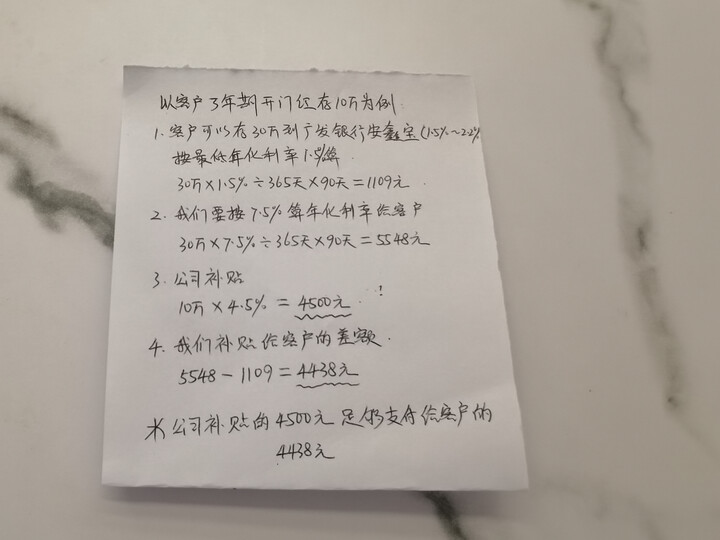 以客户3年期开门红存10万为例.
1. 客户可以存30万到广发银行安鑫宝(1.5%~2.2%
按最低年化利率1.5%算.
30万×1.5%÷365天×90天=1109元.
2. 我们要按7.5%算年化利率给客户
30万×7.5%÷365天×90天=5548元
3. 公司补贴
10万×4.5%=4500元. !
4. 我们补贴给客户的差额.
5548-1109=4438元
*公司补贴的4500元足够支付给客户的
4438元